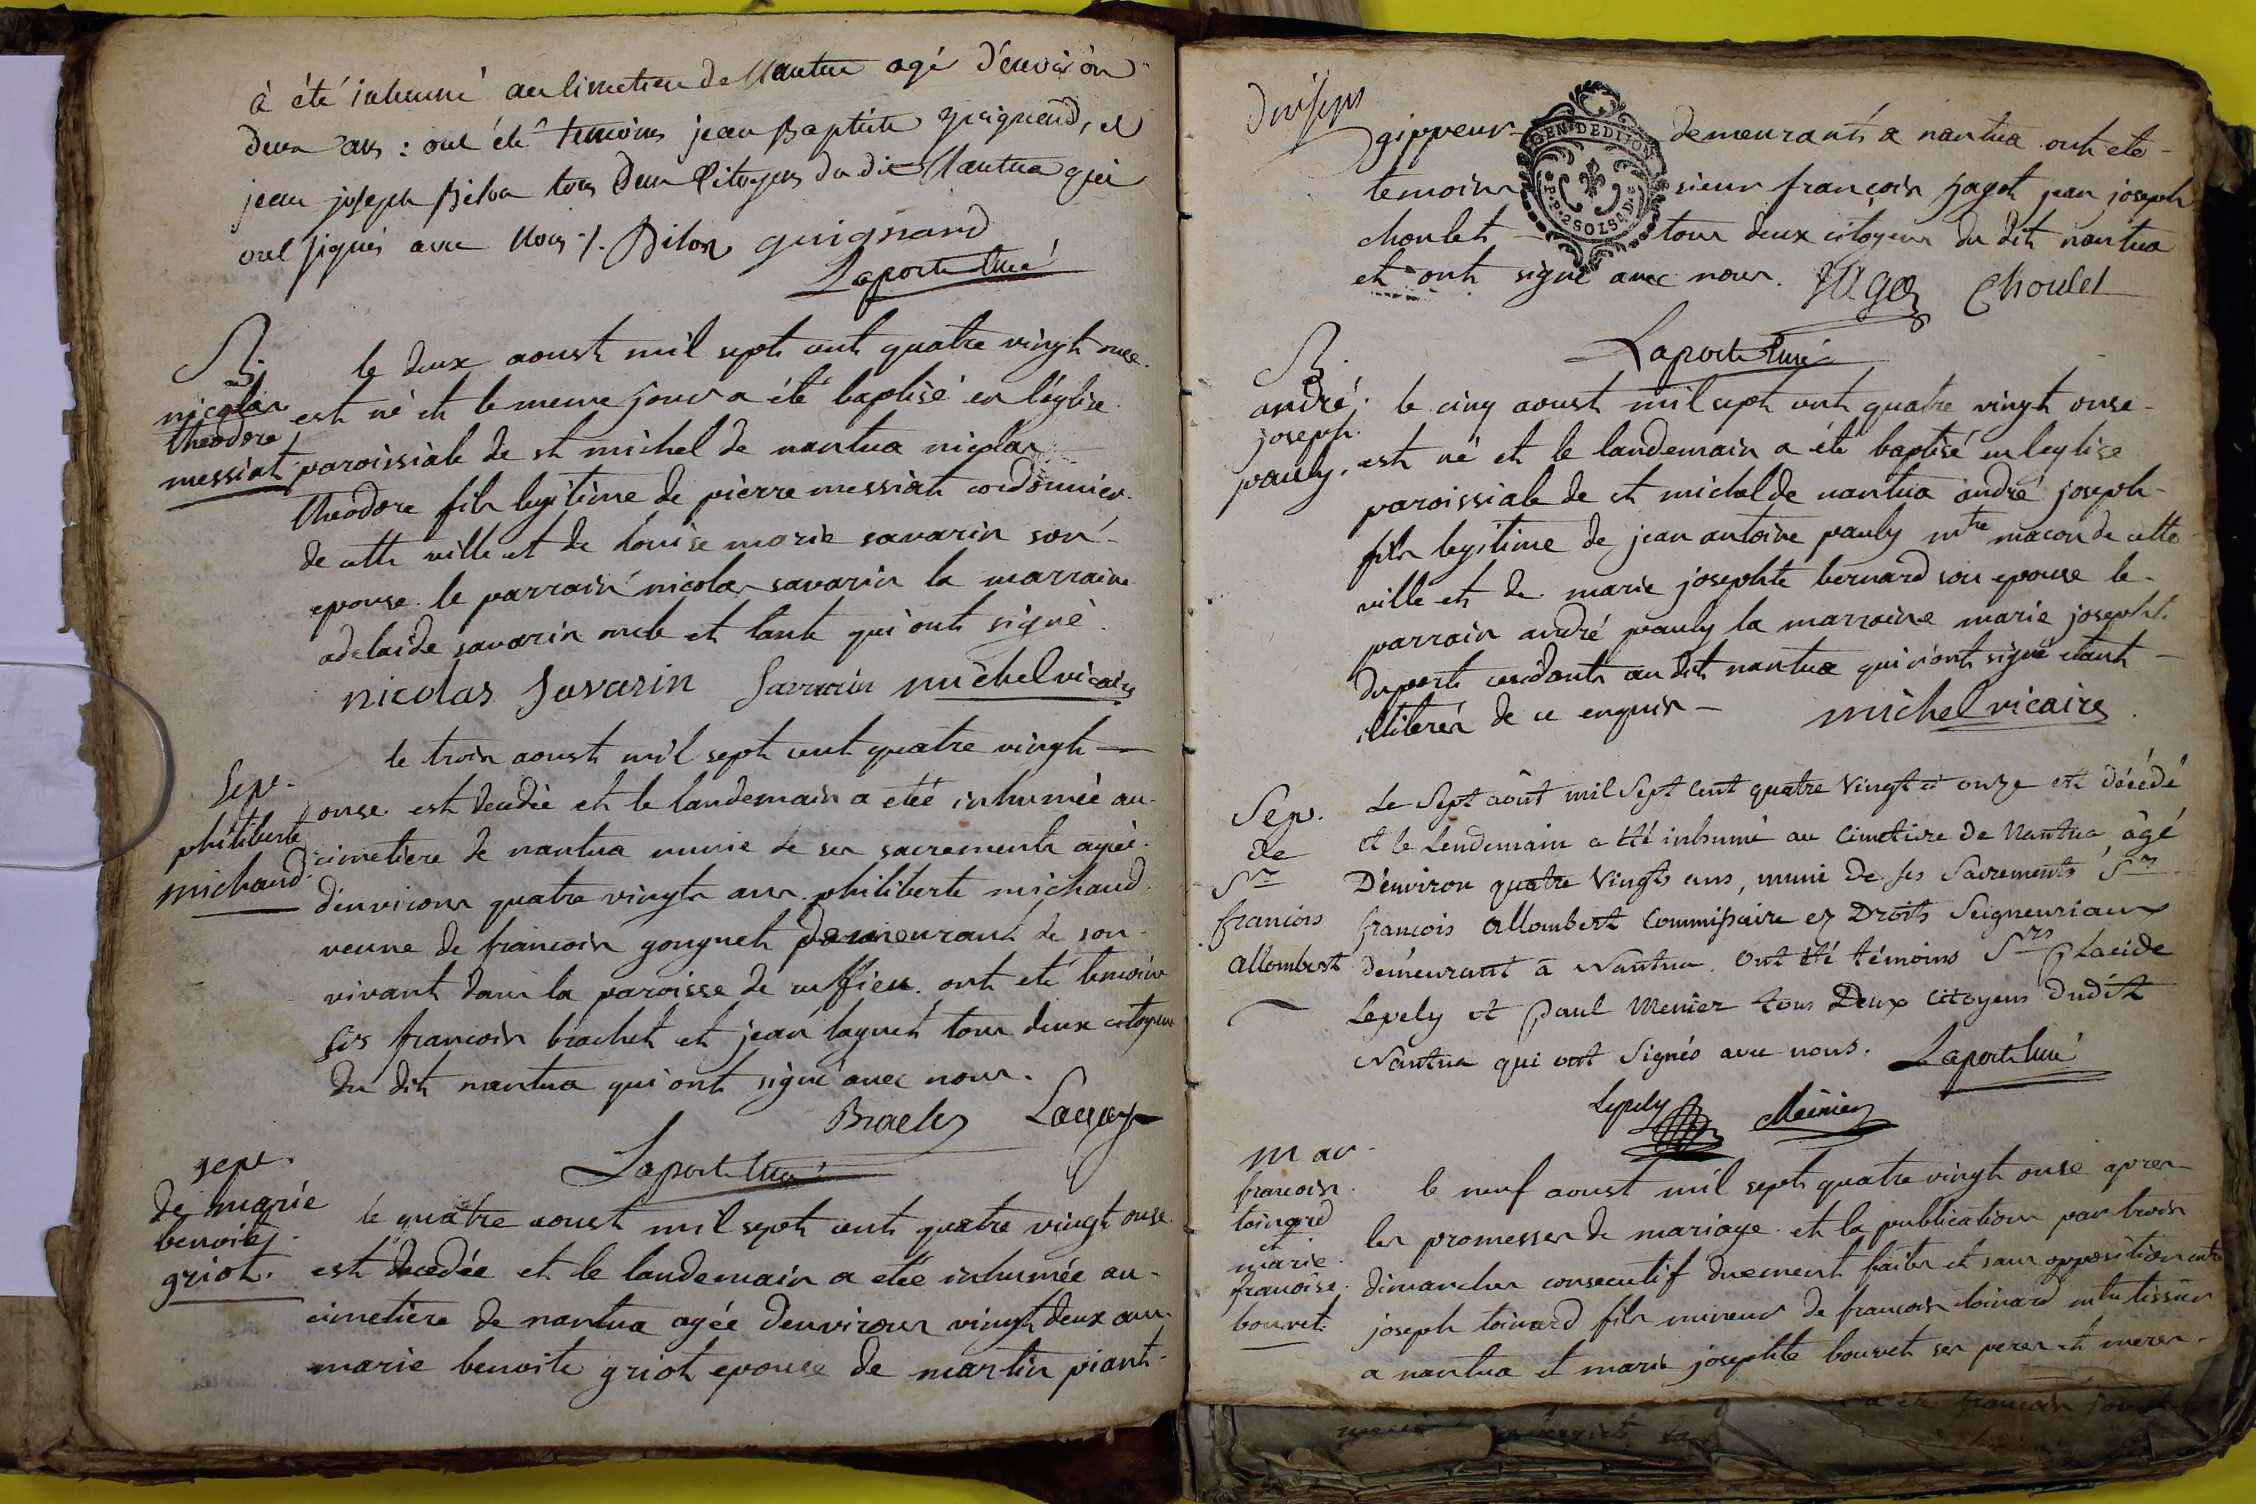 à été inhumé au Cimetiere de Nantua agé d'environ
deux ans : ont été temoins jean Baptiste guignard, et
jean joseph Bilon tous deux Citoyens du dit Nantua qui
ont signés avec Nous ./. Bilon guignard
Laporte Curé
B.
nicolas
théodore
messiat
le deux aoust mil sept cent quatre vingt onse.
est né et le meme jour a été baptisé en l'église
paroissiale de st michel de nantua nicolas
theodore fils legitime de pierre messiat cordonnier
de cette ville et de louise marie savarin son
epouse le parrain nicolas savarin la marraine
adelaide savarin oncle et tante qui ont signé.
nicolas Savarin Savarin michel vicaire
Sepe.
philiberte
michaud
le trois aoust mil sept cent quatre vingt —
onse est decedée et le landemain a etée inhumée au
cimetiere de nantua munie de ses sacrements agée
d'environs quatre vingts ans philiberte michaud
veuve de francois gouguet demeurant de son
vivant dans la paroisse de ruffieu. ont eté temoins
srs francois brachet et jean laguet tous deux citoyens
du dit nantua qui ont signé avec nous.
Brachet Laguet
Laporte Curé
sepe.
de marie
benoite
griot.
le quatre aoust mil sept cent quatre vingt onse
est decedée et le landemain a etée inhumée au
cimetiere de nantua agée d'environs vingt deux ans
marie benoite griot epouse de martin piant
gippeur demeurants a nantua ont eté
temoins sieur françois jagot jean joseph
choulet — tous deux citoyens du dit nantua
et ont signé avec nous. Jagot Choulet
GEN. DE DIJON
2 SOLS 4 D.
Laporte Curé
B.
andré
joseph
pauly.
le cinq aoust mil sept cent quatre vingt onse
est né et le landemain a été baptisé en leglise
paroissiale de st michel de nantua andré joseph
fils legitime de jean antoine pauly mtre macon de cette
ville et de marie josephte bernard son epouse le
parrain andré pauly la marraine marie josepht.
duporte residants au dit nantua qui n'ont signé etant
illiterés de ce enquis — michel vicaire
Sep.
de
Sr
francois
allombert
Le Sept août mil Sept Cent quatre Vingt et onze est décédé
et le Lendemain a été inhumé au Cimetiere de Nantua, âgé
D'environ quatre Vingts ans, muni de ses Sacrements Sr
françois allombert Commissaire ez Droits Seigneuriaux
demeurant à Nantua. Ont été témoins Srs Placide
Lepely et Paul Menier tous Deux Citoyens dudit
Nantua qui ont Signés avec nous. Laporte Curé
Lepely Meinier
mar
francois
toinard
et
marie
francoise
bouvet.
le neuf aoust mil sept quatre vingt onse apres
les promesses de mariage et la publication par trois
dimanches consecutif duement faites et sans opposition entre
joseph toinard fils mineur de francois toinard mtre tissier
a nantua et marie josephte bouvet ses peres et meres